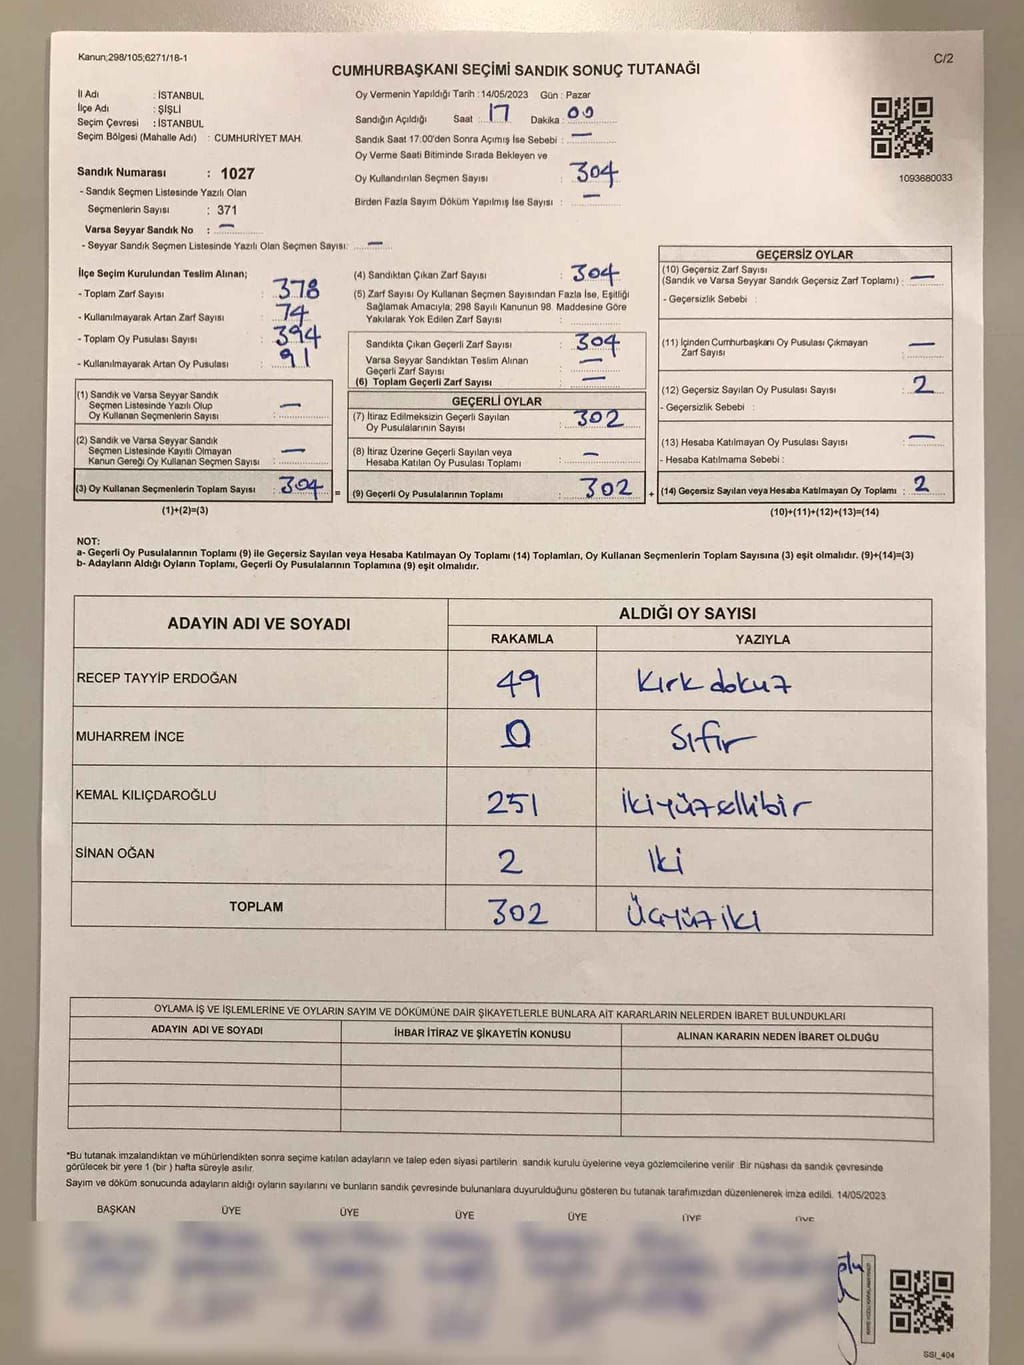 Kanun;298/105;6271/18-1
C/2
CUMHURBAŞKANI SEÇİMİ SANDIK SONUÇ TUTANAĞI
İl Adı : İSTANBUL
İlçe Adı : ŞİŞLİ
Seçim Çevresi : İSTANBUL
Seçim Bölgesi (Mahalle Adı) : CUMHURİYET MAH.
Sandık Numarası : 1027
- Sandık Seçmen Listesinde Yazılı Olan
Seçmenlerin Sayısı : 371
Varsa Seyyar Sandık No : —
- Seyyar Sandık Seçmen Listesinde Yazılı Olan Seçmen Sayısı: —
Oy Vermenin Yapıldığı Tarih : 14/05/2023 Gün : Pazar
Sandığın Açıldığı Saat : 17 Dakika : 00
Sandık Saat 17:00'den Sonra Açımış İse Sebebi : —
Oy Verme Saati Bitiminde Sırada Bekleyen ve
Oy Kullandırılan Seçmen Sayısı : 304
Birden Fazla Sayım Döküm Yapılmış İse Sayısı : —
1093680033
İlçe Seçim Kurulundan Teslim Alınan;
- Toplam Zarf Sayısı : 378
- Kullanılmayarak Artan Zarf Sayısı : 74
- Toplam Oy Pusulası Sayısı : 394
- Kullanılmayarak Artan Oy Pusulası : 91
(1) Sandık ve Varsa Seyyar Sandık
Seçmen Listesinde Yazılı Olup
Oy Kullanan Seçmenlerin Sayısı : —
(2) Sandık ve Varsa Seyyar Sandık
Seçmen Listesinde Kayıtlı Olmayan
Kanun Gereği Oy Kullanan Seçmen Sayısı : —
(3) Oy Kullanan Seçmenlerin Toplam Sayısı : 304 =
(1)+(2)=(3)
(4) Sandıktan Çıkan Zarf Sayısı : 304
(5) Zarf Sayısı Oy Kullanan Seçmen Sayısından Fazla İse, Eşitliği
Sağlamak Amacıyla; 298 Sayılı Kanunun 98. Maddesine Göre
Yakılarak Yok Edilen Zarf Sayısı :
Sandıkta Çıkan Geçerli Zarf Sayısı : 304
Varsa Seyyar Sandıktan Teslim Alınan
Geçerli Zarf Sayısı : —
(6) Toplam Geçerli Zarf Sayısı : —
GEÇERLİ OYLAR
(7) İtiraz Edilmeksizin Geçerli Sayılan
Oy Pusulalarının Sayısı : 302
(8) İtiraz Üzerine Geçerli Sayılan veya
Hesaba Katılan Oy Pusulası Toplamı : —
(9) Geçerli Oy Pusulalarının Toplamı : 302 +
GEÇERSİZ OYLAR
(10) Geçersiz Zarf Sayısı
(Sandık ve Varsa Seyyar Sandık Geçersiz Zarf Toplamı) : —
- Geçersizlik Sebebi :
(11) İçinden Cumhurbaşkanı Oy Pusulası Çıkmayan
Zarf Sayısı : —
(12) Geçersiz Sayılan Oy Pusulası Sayısı : 2
- Geçersizlik Sebebi :
(13) Hesaba Katılmayan Oy Pusulası Sayısı : —
- Hesaba Katılmama Sebebi :
(14) Geçersiz Sayılan veya Hesaba Katılmayan Oy Toplamı : 2
(10)+(11)+(12)+(13)=(14)
NOT:
a- Geçerli Oy Pusulalarının Toplamı (9) ile Geçersiz Sayılan veya Hesaba Katılmayan Oy Toplamı (14) Toplamları, Oy Kullanan Seçmenlerin Toplam Sayısına (3) eşit olmalıdır. (9)+(14)=(3)
b- Adayların Aldığı Oyların Toplamı, Geçerli Oy Pusulalarının Toplamına (9) eşit olmalıdır.
ADAYIN ADI VE SOYADI ALDIĞI OY SAYISI
RAKAMLA YAZIYLA
RECEP TAYYİP ERDOĞAN 49 Kırk dokuz
MUHARREM İNCE 0 Sıfır
KEMAL KILIÇDAROĞLU 251 İkiyüzellibir
SİNAN OĞAN 2 İki
TOPLAM 302 Üçyüziki
OYLAMA İŞ VE İŞLEMLERİNE VE OYLARIN SAYIM VE DÖKÜMÜNE DAİR ŞİKAYETLERLE BUNLARA AİT KARARLARIN NELERDEN İBARET BULUNDUKLARI
ADAYIN ADI VE SOYADI İHBAR İTİRAZ VE ŞİKAYETİN KONUSU ALINAN KARARIN NEDEN İBARET OLDUĞU
*Bu tutanak imzalandıktan ve mühürlendikten sonra seçime katılan adayların ve talep eden siyasi partilerin sandık kurulu üyelerine veya gözlemcilerine verilir. Bir nüshası da sandık çevresinde
görülecek bir yere 1 (bir ) hafta süreyle asılır.
Sayım ve döküm sonucunda adayların aldığı oyların sayılarını ve bunların sandık çevresinde bulunanlara duyurulduğunu gösteren bu tutanak tarafımızdan düzenlenerek imza edildi. 14/05/2023
BAŞKAN ÜYE ÜYE ÜYE ÜYE ÜYE ÜYE
SSI_404